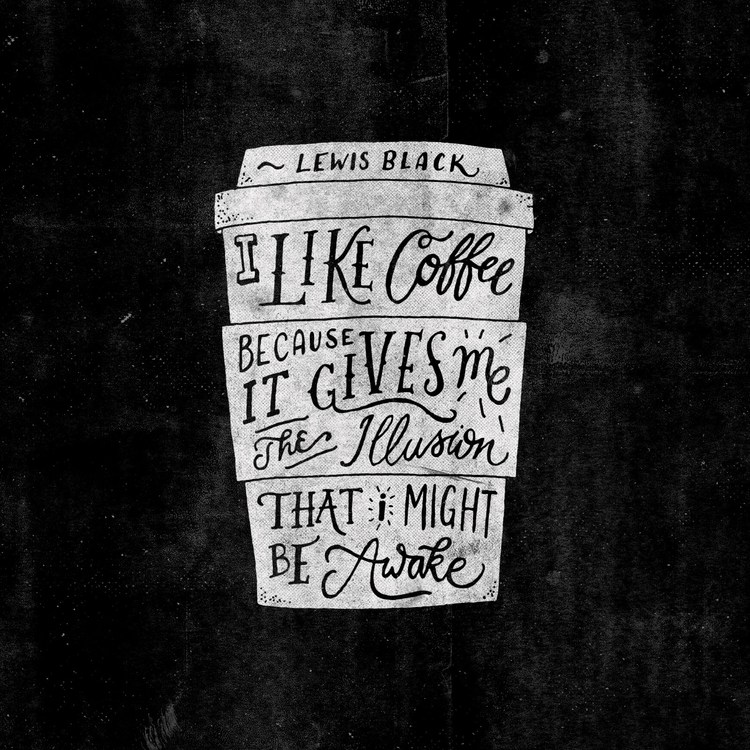 ~ LEWIS BLACK
I LIKE Coffee
BECAUSE
IT GIVES me
The Illusion
THAT i MIGHT
BE Awake